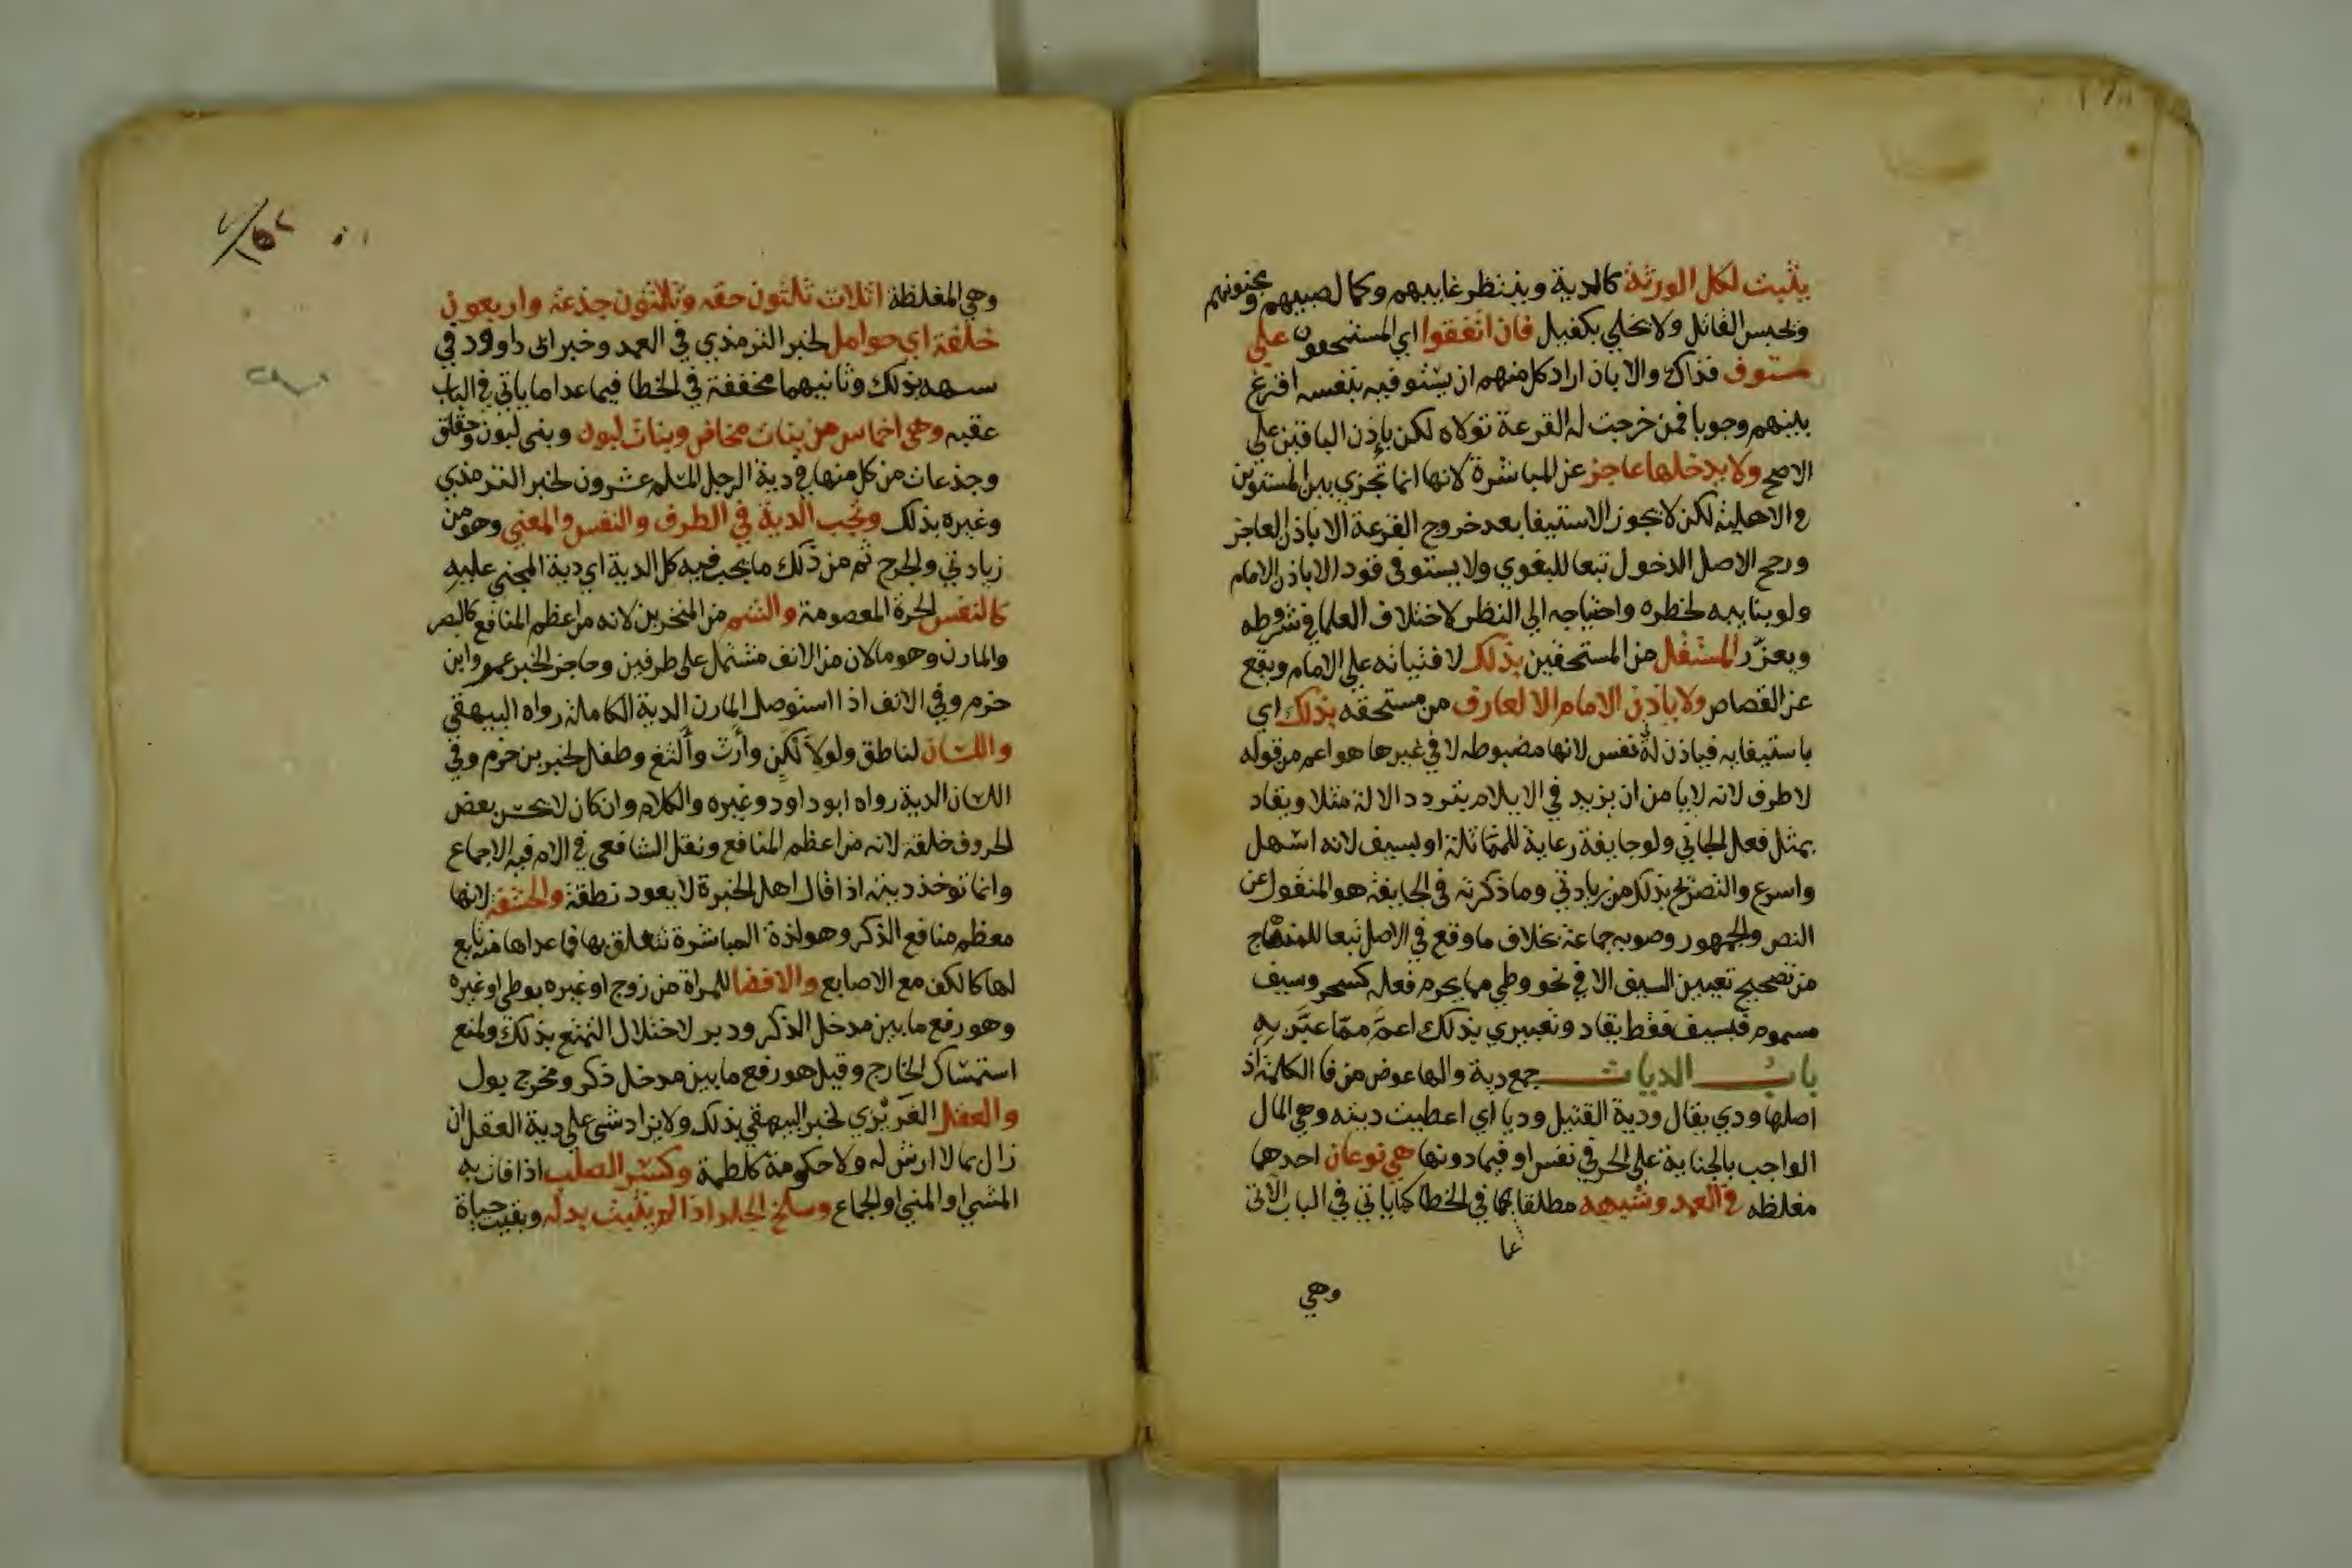 يثبت لكل الورثة كالدية وينتظر غايبهم وكمال صبيهم ومجنونهم
ويحبس القاتل ولا يخلي بكفيل فان اتفقوا اي المستحقون علي
مستوف فذاك والا بان اراد كل منهم ان يستوفيه بنفسه اقرع
بينهم وجوبا فمن خرجت له القرعة تولاه لكن باذن الباقين علي
الاصح ولا يدخلها عاجز عن المباشرة لانها انما تجزي بين المستوين
في الاهلية لكن لا يجوز الاستيفا بعد خروج القرعة الا باذن العاجز
ورجح الاصل الدخول تبعا للبغوي ولا يستوفي قود الا باذن الامام
ولو بنايبه لخطره واحتياجه الي النظر لاختلاف العلما في شروطه
ويعزر المستقل من المستحقين بذلك لافتياته علي الامام ويقع
عن القصاص ولا ياذن الامام الا لعارف من مستحقه بذلك اي
باستيفايه فياذن له في نفس لانها مضبوطه لا في غيرها هو اعم من قوله
لا طرف لانه لا يامن ان يزيد في الايلام بتردد الالة مثلا ويقاد
بمثل فعل الجاني ولو جايفة رعاية للمماثلة او بسيف لانه اسهل
واسرع والتصريح بذلك من زيادتي وما ذكرته في الجايفة هو المنقول عن
النص والجمهور وصوبه جماعة بخلاف ما وقع في الاصل تبعا للمنهاج
من تصحيح تعيين السيف الا في نحو وطي مما يحرم فعله كسحر وسيف
مسموم فبسيف فقط يقاد وتعبيري بذلك اعم مما عبر به
باب الديات جمع دية والها عوض من فا الكلمة اذ
اصلها ودي يقال ودية القتيل وديا اي اعطيت ديته وهي المال
الواجب بالجناية علي الحر في نفس او فيما دونها هي نوعان احدهما
مغلظه في العمد وشبهه مطلقا في الخطا كما ياتي في الباب الاتي
وهي
وهي المغلظة اثلاث ثلثون حقه وثلثون جذعة واربعون
خلفة اي حوامل لخبر الترمذي في العمد وخبر ابي داوود في
شبهه بذلك وثانيهما مخففة في الخطا فيما عدا ما ياتي في الباب
عقبه وهي اخماس من بنات مخاض وبنات لبون وبني لبون وحقاق
وجذعات من كل منها في دية الرجل المسلم عشرون لخبر الترمذي
وغيره بذلك وتجب الدية في الطرف والنفس والمعني وهو من
زيادتي والجرح ثم من ذلك ما يجب فيه كل الدية اي دية المجني عليه
كالنفس الحرة المعصومة والشم من المنخرين لانه من اعظم المنافع كالبصر
والمارن وهو ما لان من الانف مشتمل علي طرفين وحاجز لخبر عمرو ابن
حزم وفي الانف اذا استوصل المارن الدية الكاملة رواه البيهقي
واللسان لناطق ولو لالكن وارت والثغ وطفل لخبر بن حزم وفي
اللسان الدية رواه ابو داود وغيره والكلام وان كان لا يحسن بعض
الحروف خلقة لانه من اعظم المنافع ونقل الشافعي في الام فيه الاجماع
وانما توخذ ديته اذا قال اهل الخبرة لا يعود نطقه والحشفة لانها
معظم منافع الذكر وهو لذة المباشرة تتعلق بها فما عداها منه تابع
لها كالكف مع الاصابع والافضا للمراة من زوج او غيره بوطي او غيره
وهو رفع ما بين مدخل الذكر ودبر لاختلال التمتع بذلك ولمنع
استمساك الخارج وقيل هو رفع ما بين مدخل ذكر ومخرج بول
والعقل الغريزي لخبر البيهقي بذلك ولا يزاد شي علي دية العقل ان
زال بما لا ارش له ولا حكومة كلطمة وكسر الصلب اذا فات به
المشي او المني او الجماع وسلخ الجلد اذا لم ينبت بدله وبقيت حياة